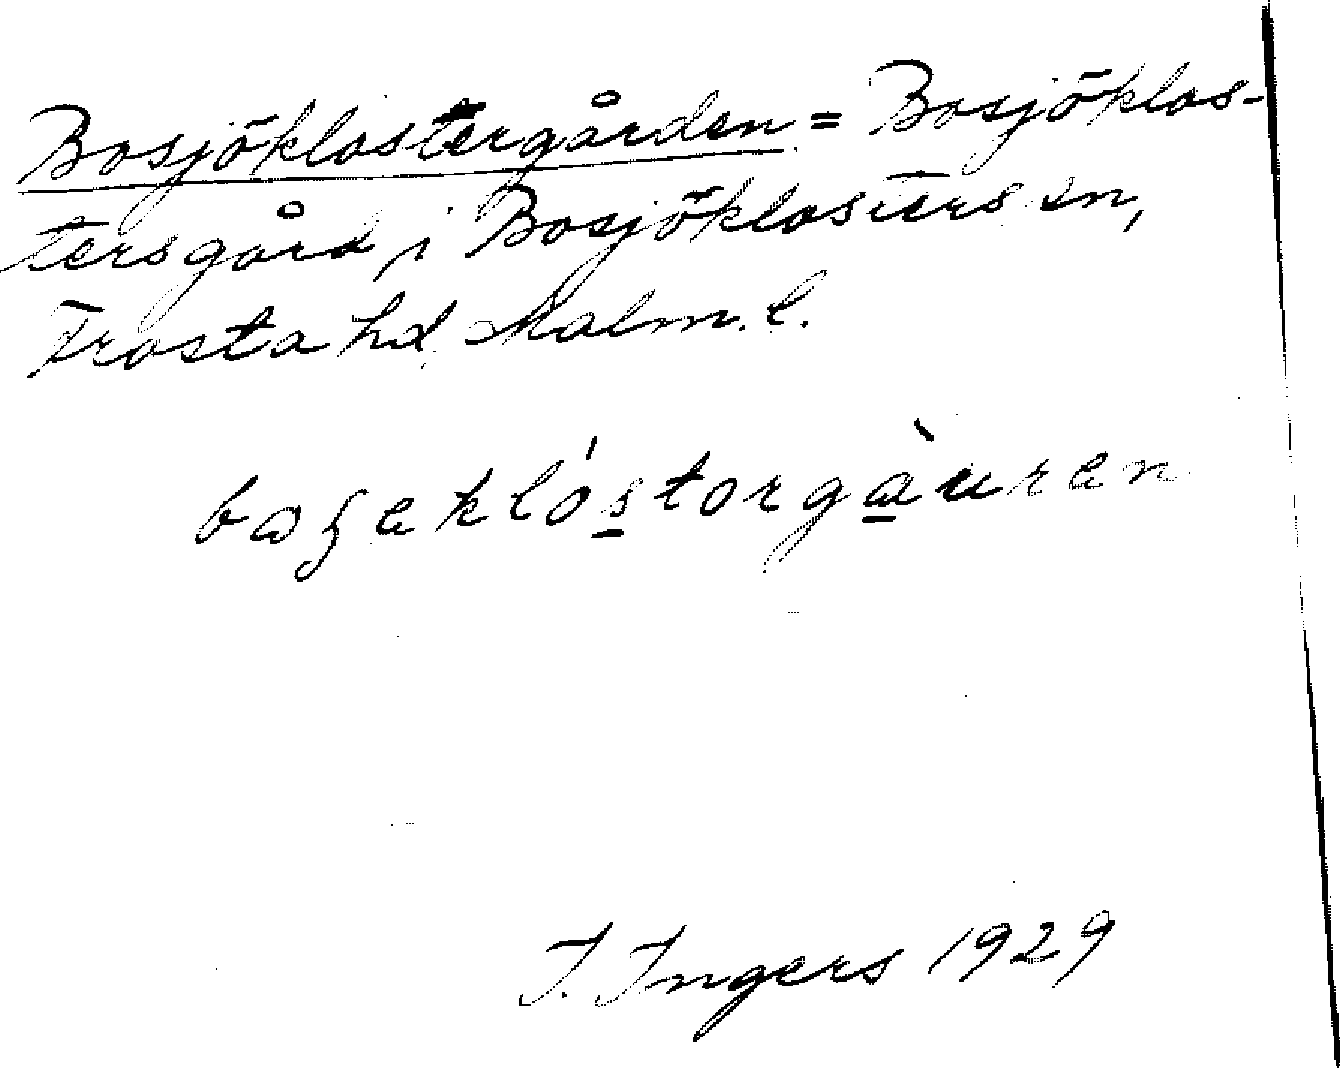 Bosjöklostergården = Bosjöklos-
tersgård, i Bosjöklosters sn,
Frosta hd, Malm. l.
boʒeklóstorgàuren
I. Ingers 1929